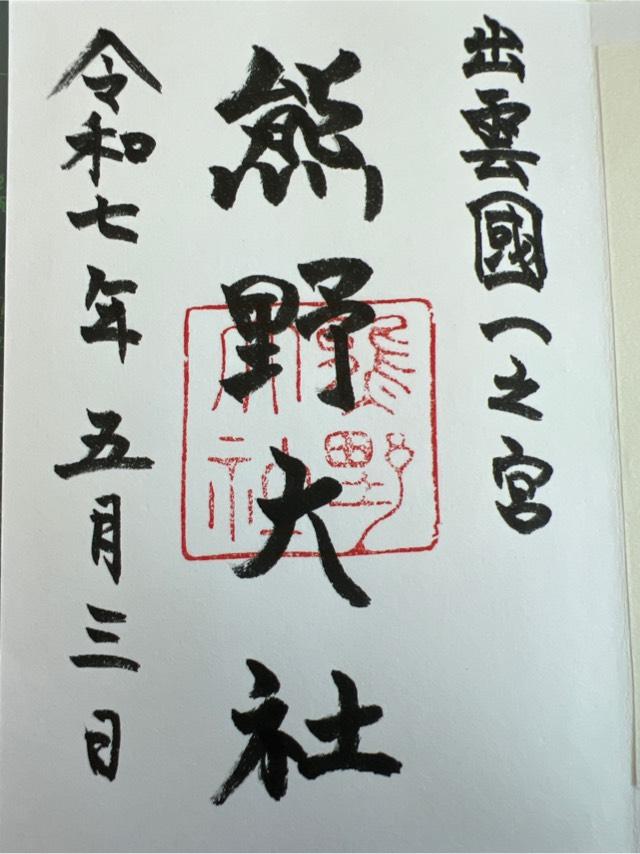 出雲國一之宮
熊野大社
令和七年 五月三日
熊野
大社